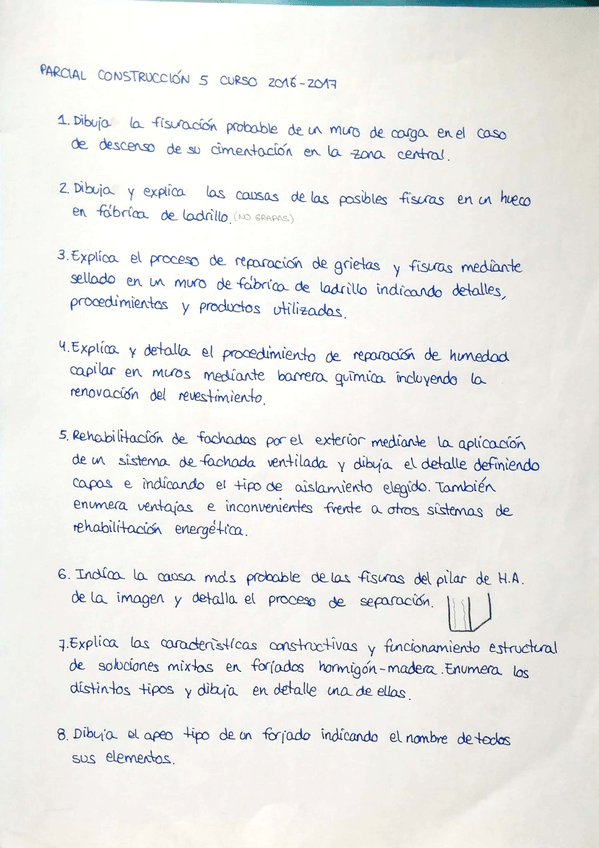 PARCIAL CONSTRUCCIÓN 5 CURSO 2016-2017
1. Dibuja la fisuración probable de un muro de carga en el caso
de descenso de su cimentación en la zona central.
2. Dibuja y explica las causas de las posibles fisuras en un hueco
en fábrica de ladrillo. (NO GRAPAS)
3. Explica el proceso de reparación de grietas y fisuras mediante
sellado en un muro de fábrica de ladrillo indicando detalles,
procedimientos y productos utilizados.
4. Explica y detalla el procedimiento de reparación de humedad
capilar en muros mediante barrera química incluyendo la
renovación del revestimiento.
5. Rehabilitación de fachadas por el exterior mediante la aplicación
de un sistema de fachada ventilada y dibuja el detalle definiendo
capas e indicando el tipo de aislamiento elegido. También
enumera ventajas e inconvenientes frente a otros sistemas de
rehabilitación energética.
6. Indica la causa más probable de las fisuras del pilar de H.A.
de la imagen y detalla el proceso de separación.
7. Explica las características constructivas y funcionamiento estructural
de soluciones mixtas en forjados hormigón-madera. Enumera los
distintos tipos y dibuja en detalle una de ellas.
8. Dibuja el apeo tipo de un forjado indicando el nombre de todos
sus elementos.